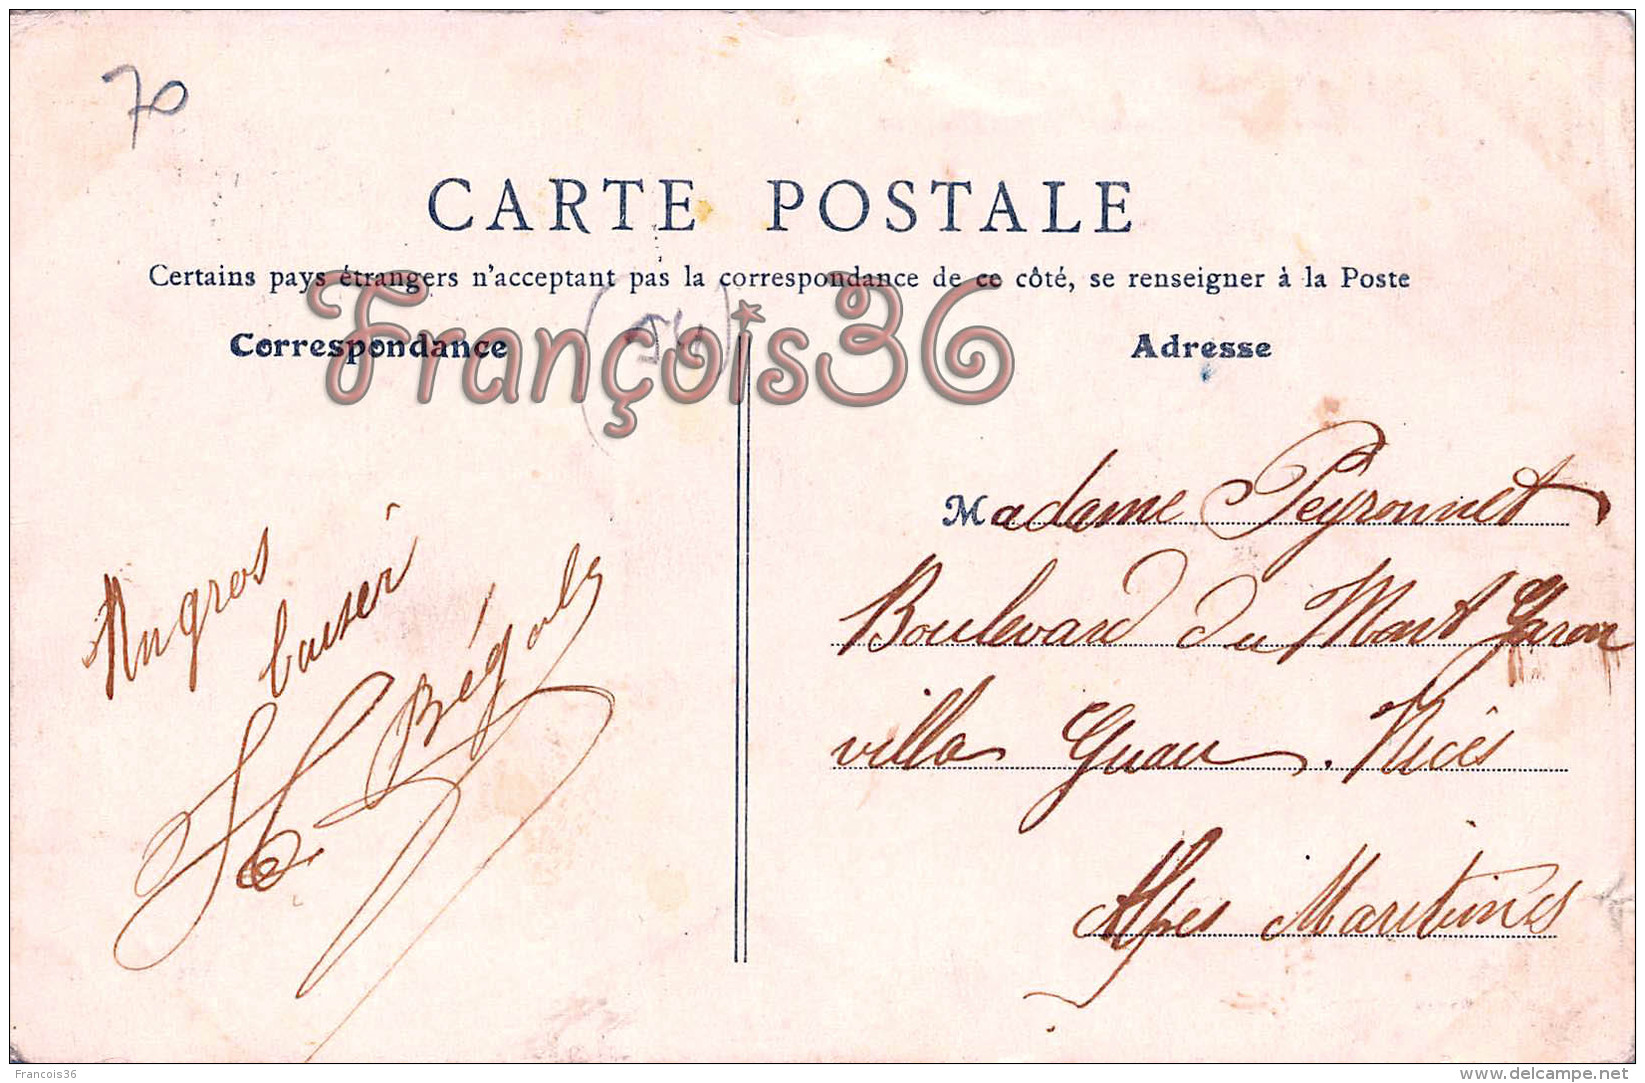 70
CARTE POSTALE
Certains pays étrangers n'acceptant pas la correspondance de ce côté, se renseigner à la Poste
François36
Correspondance
Adresse
un gros
baiser
Madame Peyronnet
Boulevard du Mont
villa Nices
Alpes Maritimes
Francois36
www.delcampe.net